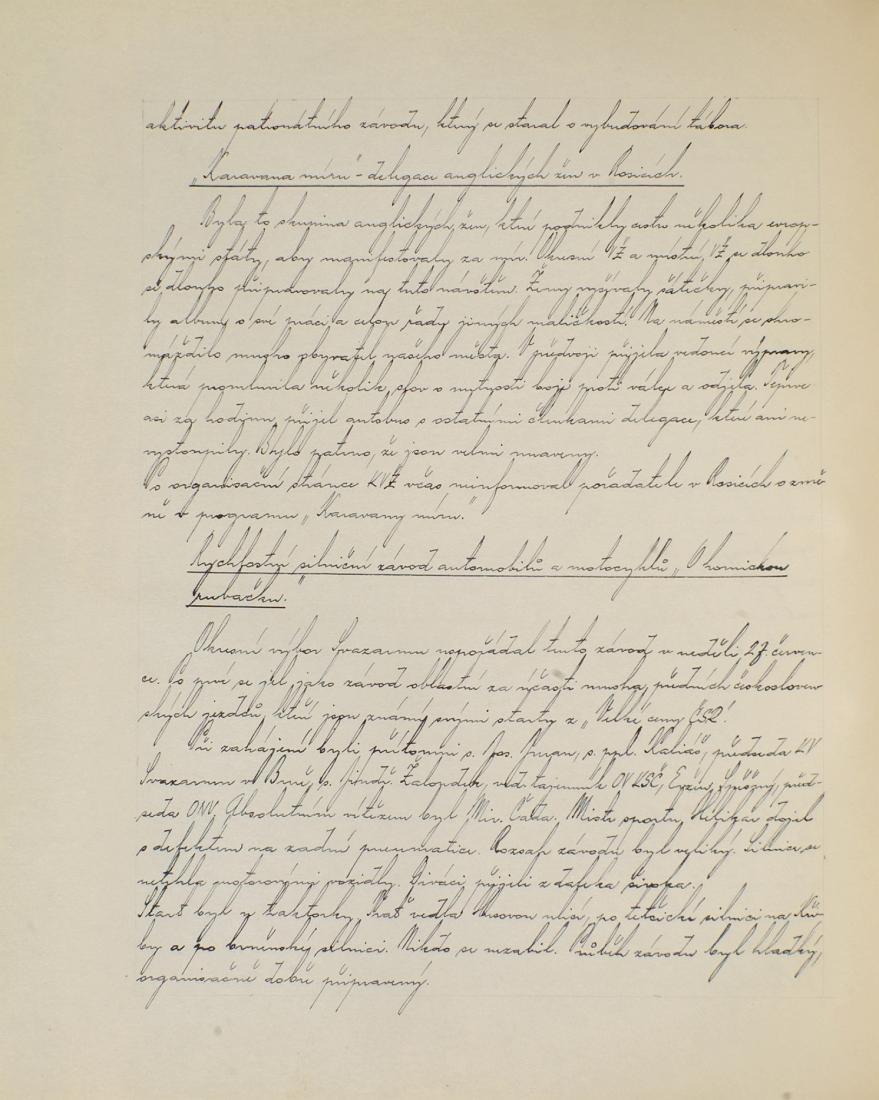 aktivitu patronátního závodu, který se staral o vybudování tábora.
„Karavana míru" - delegace anglických žen v Rosicích.
Byla to skupina anglických žen, které podnikly cestu několika evrop-
skými státy, aby manifestovaly za mír. Okresní VŽ a místní VŽ se dlouho
se dlouho připravovaly na tuto návštěvu. Ženy vyšívaly šátečky, připravi-
ly album o své práci a celou řadu jiných maličkostí. Na náměstí se shro-
máždilo mnoho obyvatel našeho města. V předvoji přijela vedoucí výpravy,
která promluvila několik slov o nutnosti boje proti válce a odjela. Teprve
asi za hodinu přijel autobus s ostatními členkami delegace, které ani ne-
vystoupily. Bylo patrno, že jsou velmi unaveny.
Po organisační stránce KVŽ včas neinformoval pořadatele v Rosicích o změ-
ně v programu „Karavany míru."
Rychlostní silniční závod automobilů a motocyklů „O hornickou
rubačku."
Okresní výbor Svazarmu uspořádal tento závod v neděli 27. červen-
ce. Po prvé se jel jako závod oblastní za účasti mnoha předních českosloven
ských jezdců, kteří jsou známí svými starty z „Velké ceny ČSR".
Při zahájení byli přítomni s. Jos. s. ppl. předseda KV
Svazarmu v Brně, s. Jindř. ved. tajemník OV KSČ, před-
seda ONV. Absolutním vítězem byl Mir. Čada. Mistr sportu dojel
s defektem na zadní pneumatice. Rozsah závodu byl veliký. Silnice se
netrhla motorovými vozidly. Diváci přijeli z daleka široka.
Start byl u Trať vedla Husovou ulicí, po tetčické silnici na
by a po brněnské silnici. Nikdo se nezabil. Průběh závodu byl hladký,
organisačně dobře připravený.